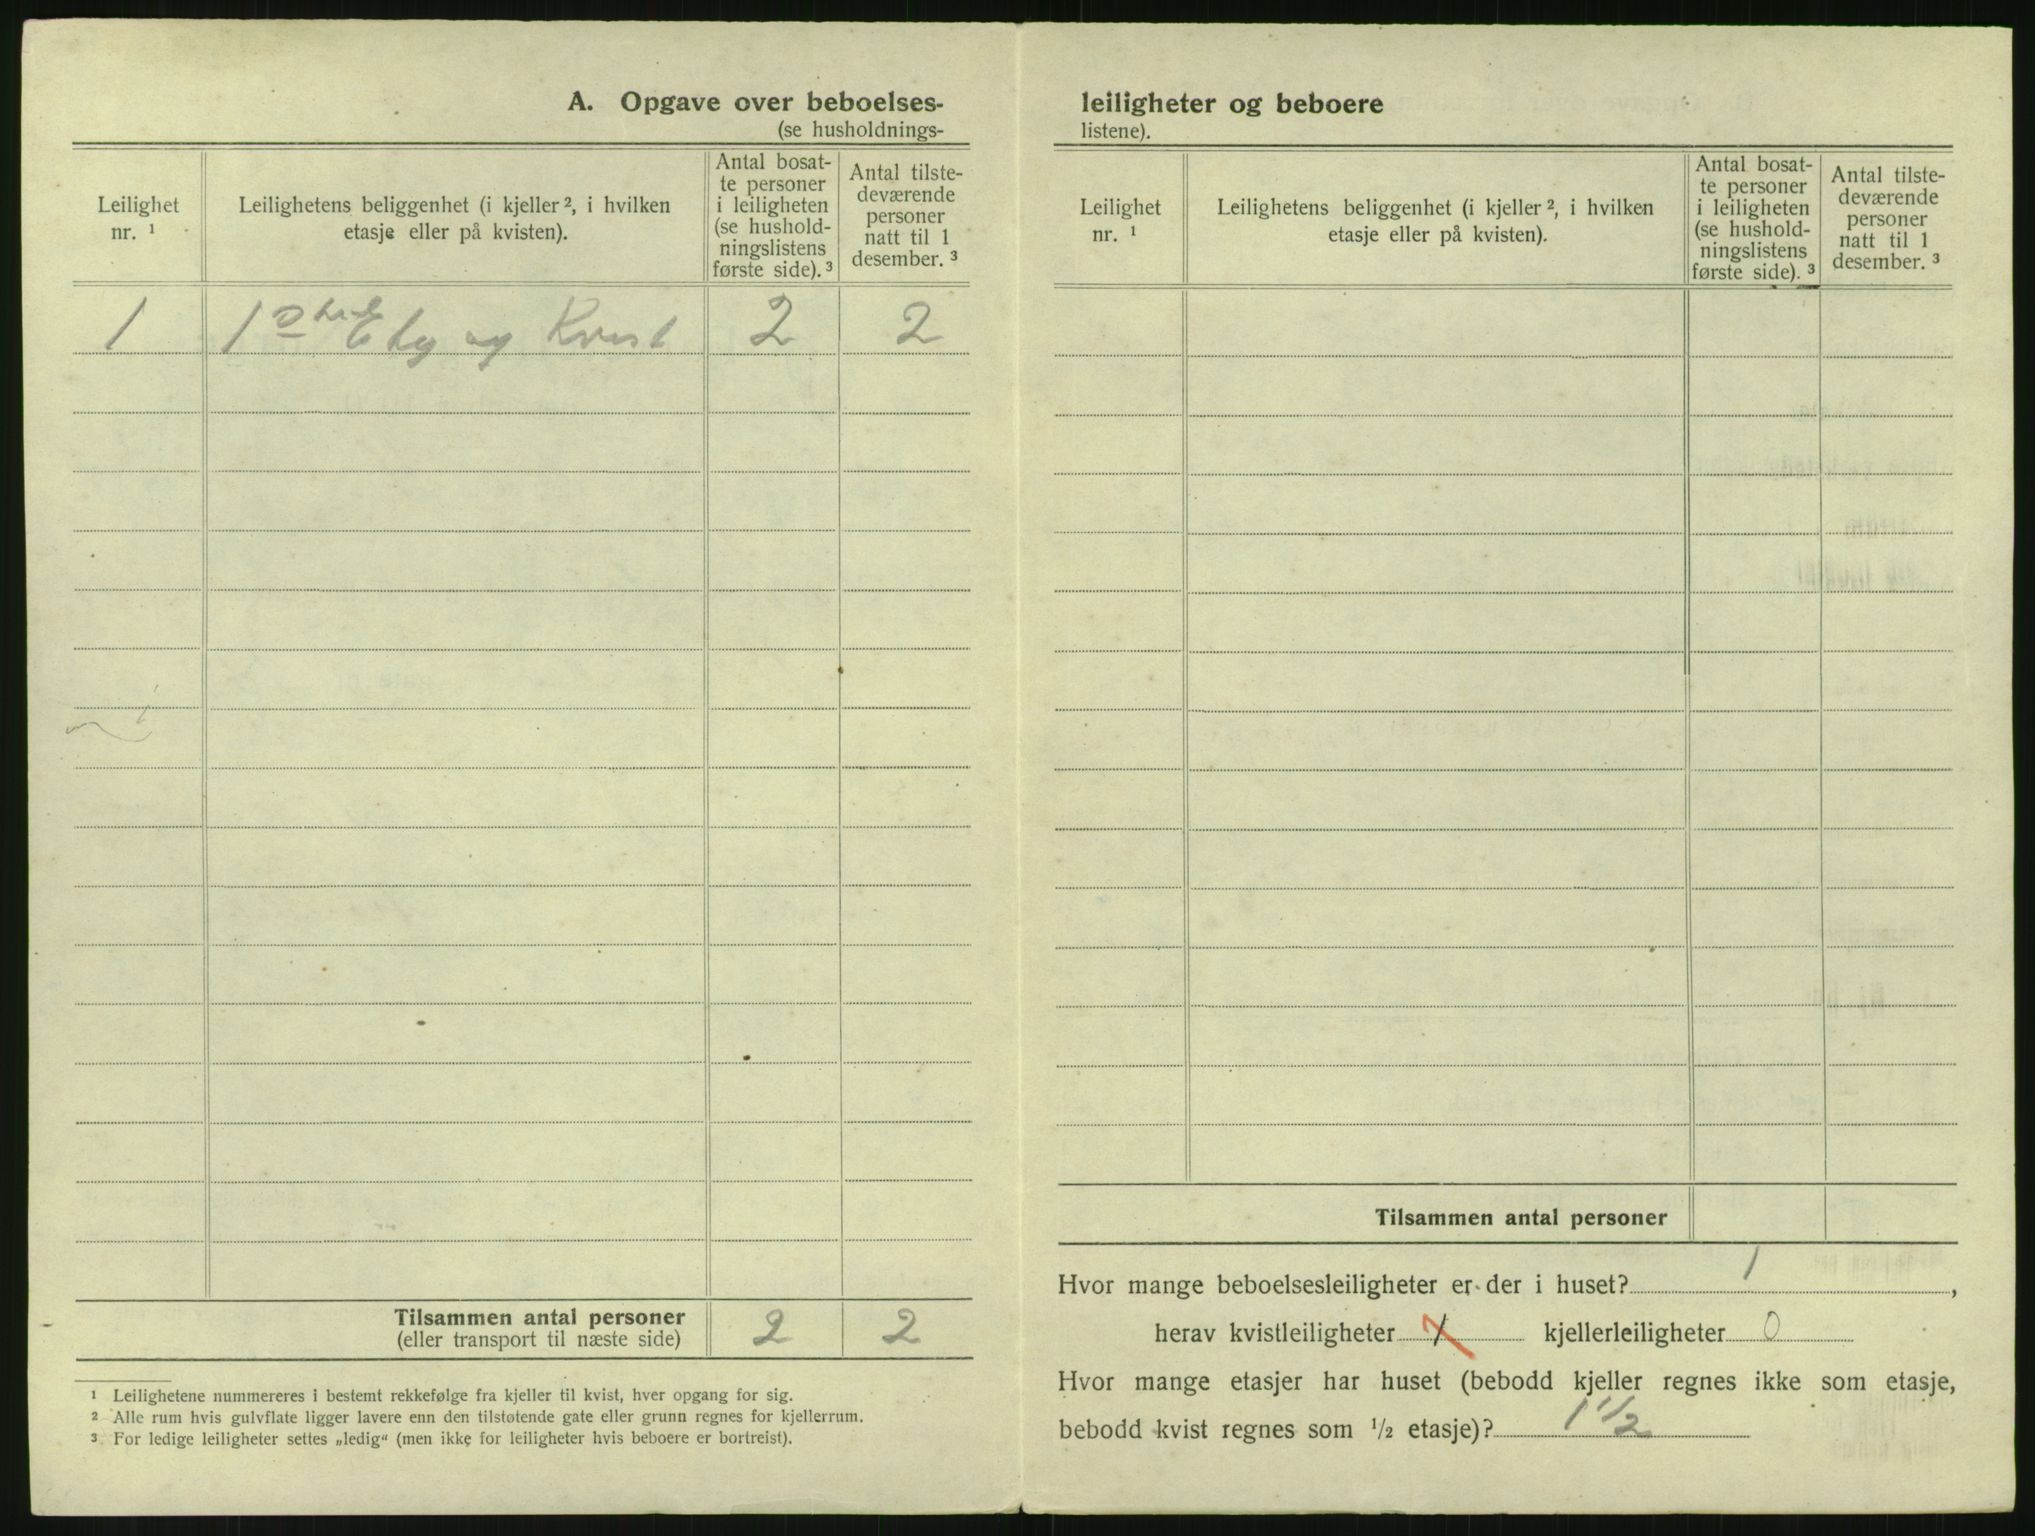 A. Opgave over beboelses-
(se husholdnings-
Leilighet
nr. ¹
Leilighetens beliggenhet (i kjeller ², i hvilken
etasje eller på kvisten).
Antal bosat-
te personer
i leiligheten
(se hushold-
ningslistens
første side). ³
Antal tilste-
deværende
personer
natt til 1
desember. ³
1 og Kvist 2 2
Tilsammen antal personer 2 2
(eller transport til næste side)
¹ Leilighetene nummereres i bestemt rekkefølge fra kjeller til kvist, hver opgang for sig.
² Alle rum hvis gulvflate ligger lavere enn den tilstøtende gate eller grunn regnes for kjellerrum.
³ For ledige leiligheter settes „ledig“ (men ikke for leiligheter hvis beboere er bortreist).
leiligheter og beboere
listene).
Leilighet
nr. ¹
Leilighetens beliggenhet (i kjeller ², i hvilken
etasje eller på kvisten).
Antal bosat-
te personer
i leiligheten
(se hushold-
ningslistens
første side). ³
Antal tilste-
deværende
personer
natt til 1
desember. ³
Tilsammen antal personer
Hvor mange beboelsesleiligheter er der i huset? 1,
herav kvistleiligheter 1 kjellerleiligheter 0
Hvor mange etasjer har huset (bebodd kjeller regnes ikke som etasje,
bebodd kvist regnes som ½ etasje)? 1 1/2